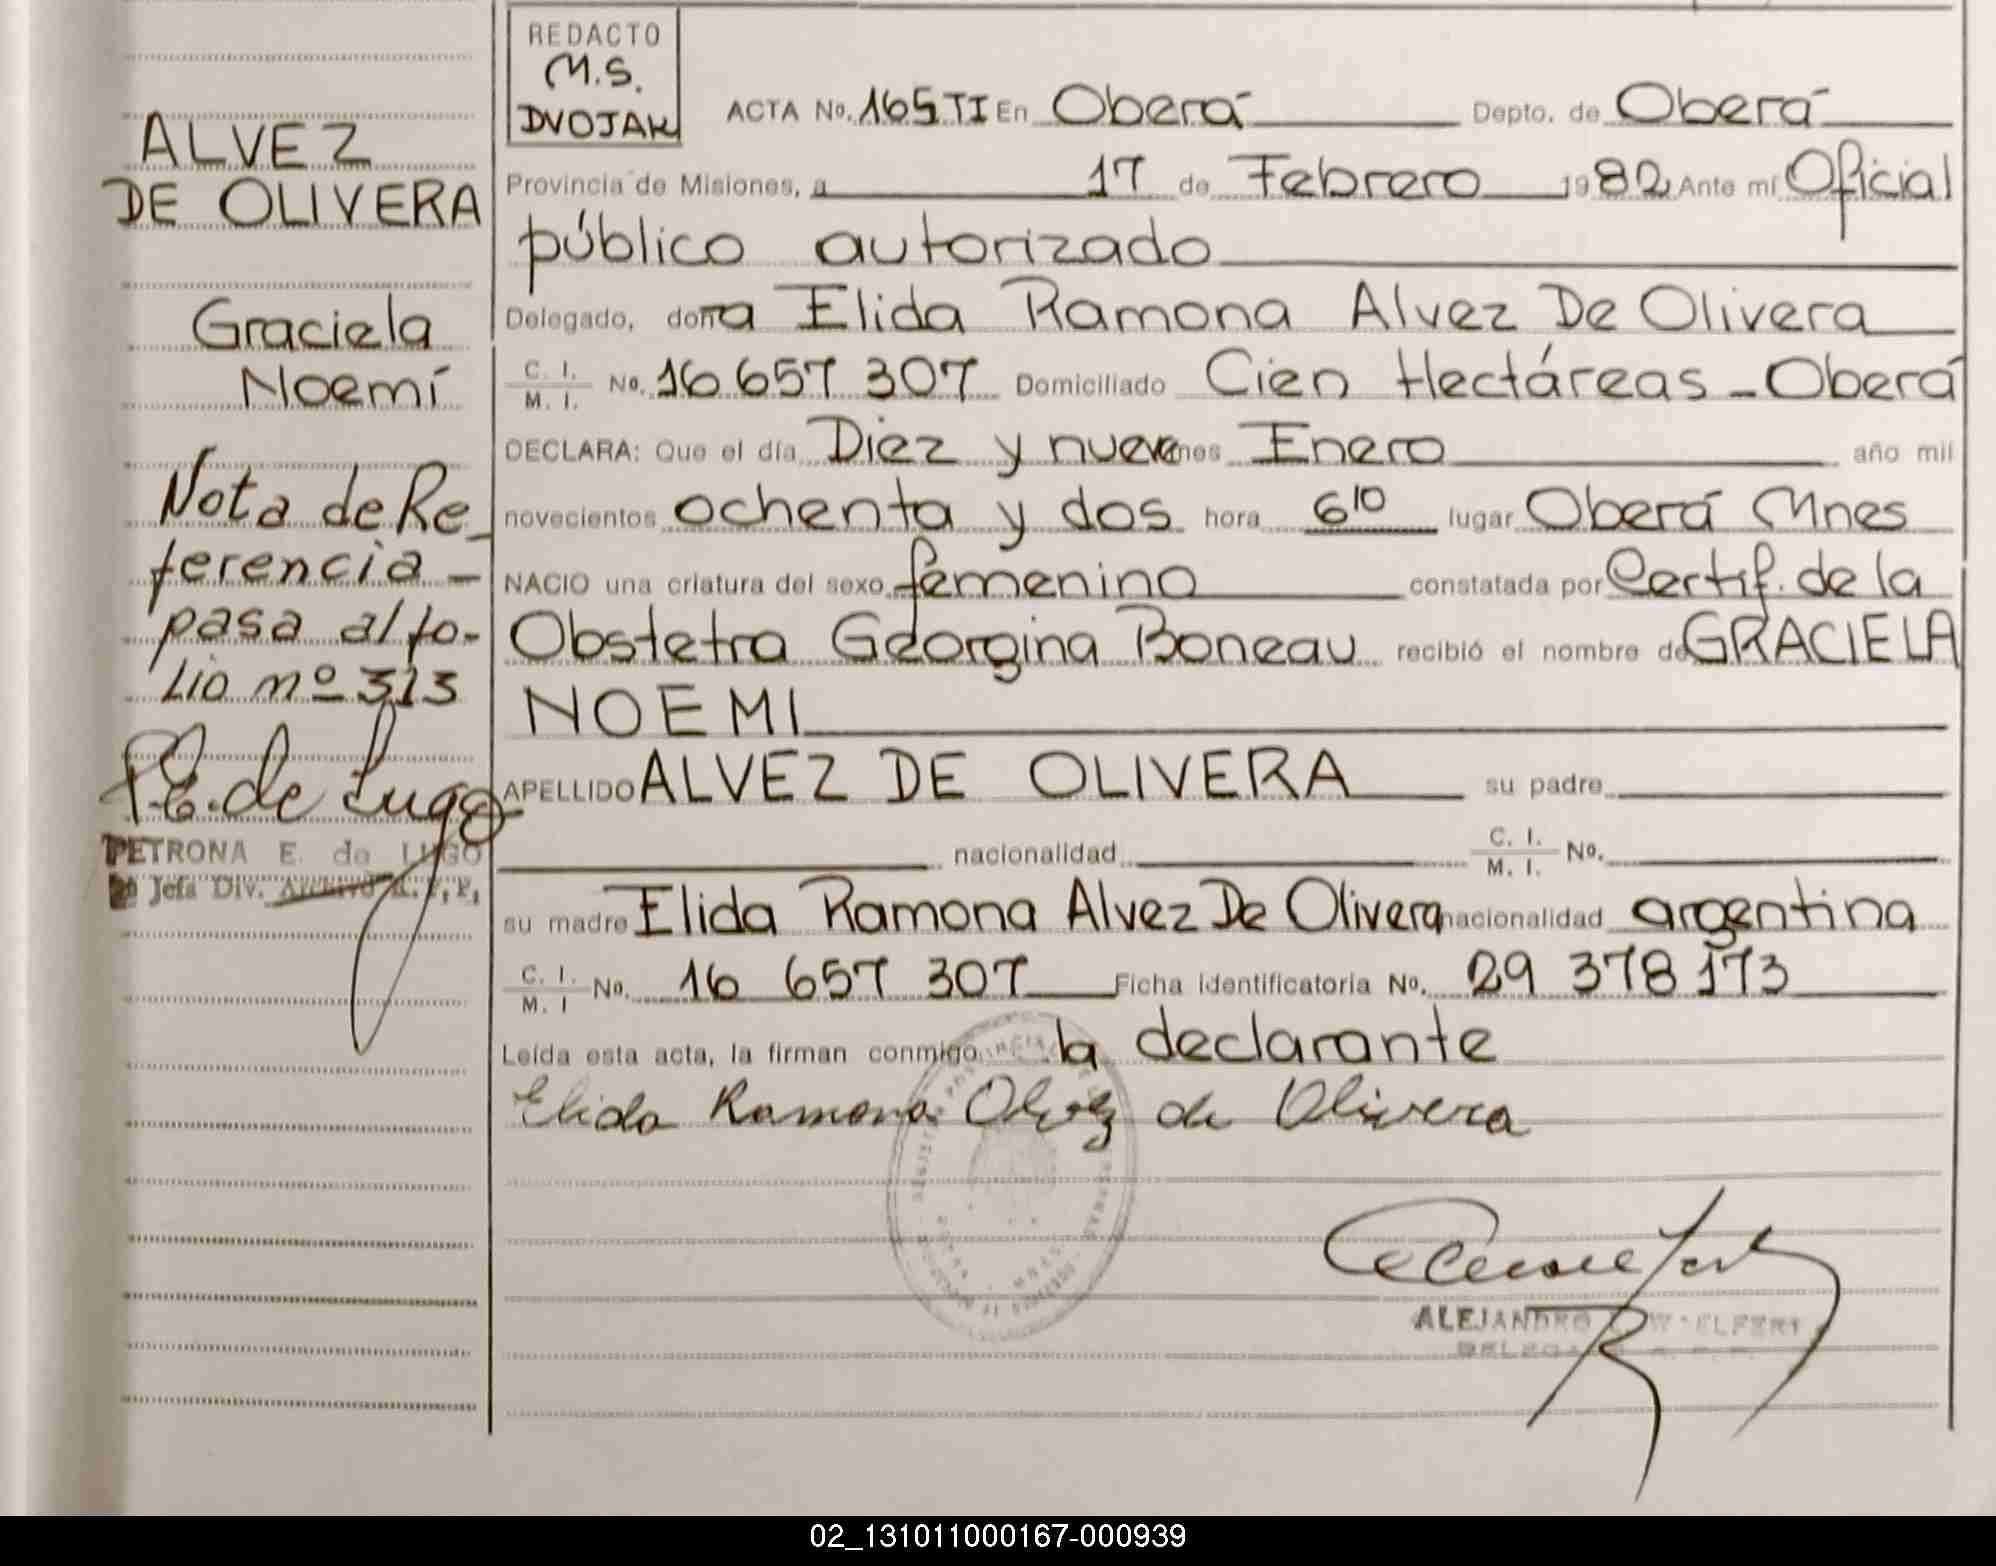 REDACTO
M.S.
DVOJAK
ACTA No. 165 TI En Oberá Depto. de Oberá
Provincia de Misiones, a 17 de Febrero 1982 Ante mí Oficial
público autorizado
Delegado, doña Elida Ramona Alvez De Olivera
C. I. M. I. No. 16 657 307 Domiciliado Cien Hectáreas - Oberá
DECLARA: Que el día Diez y nueve mes Enero año mil
novecientos ochenta y dos hora 6 10 lugar Oberá Mnes
NACIO una criatura del sexo femenino constatada por Certif. de la
Obstetra Georgina Boneau recibió el nombre de GRACIELA
NOEMI
APELLIDO ALVEZ DE OLIVERA su padre
nacionalidad C. I. M. I. No.
su madre Elida Ramona Alvez De Olivera nacionalidad argentina
C. I. M. I No. 16 657 307 Ficha identificatoria No. 29 378 173
Leída esta acta, la firman conmigo la declarante
Elida Ramona Alvez de Olivera
ALEJANDRO
ALVEZ
DE OLIVERA
Graciela
Noemí
Nota de Re-
ferencia -
pasa al fo-
lio nº 313
P.E. de Lugo
PETRONA E. de LUGO
Jefa Div. Archivo R. P. P.
02_131011000167-000939